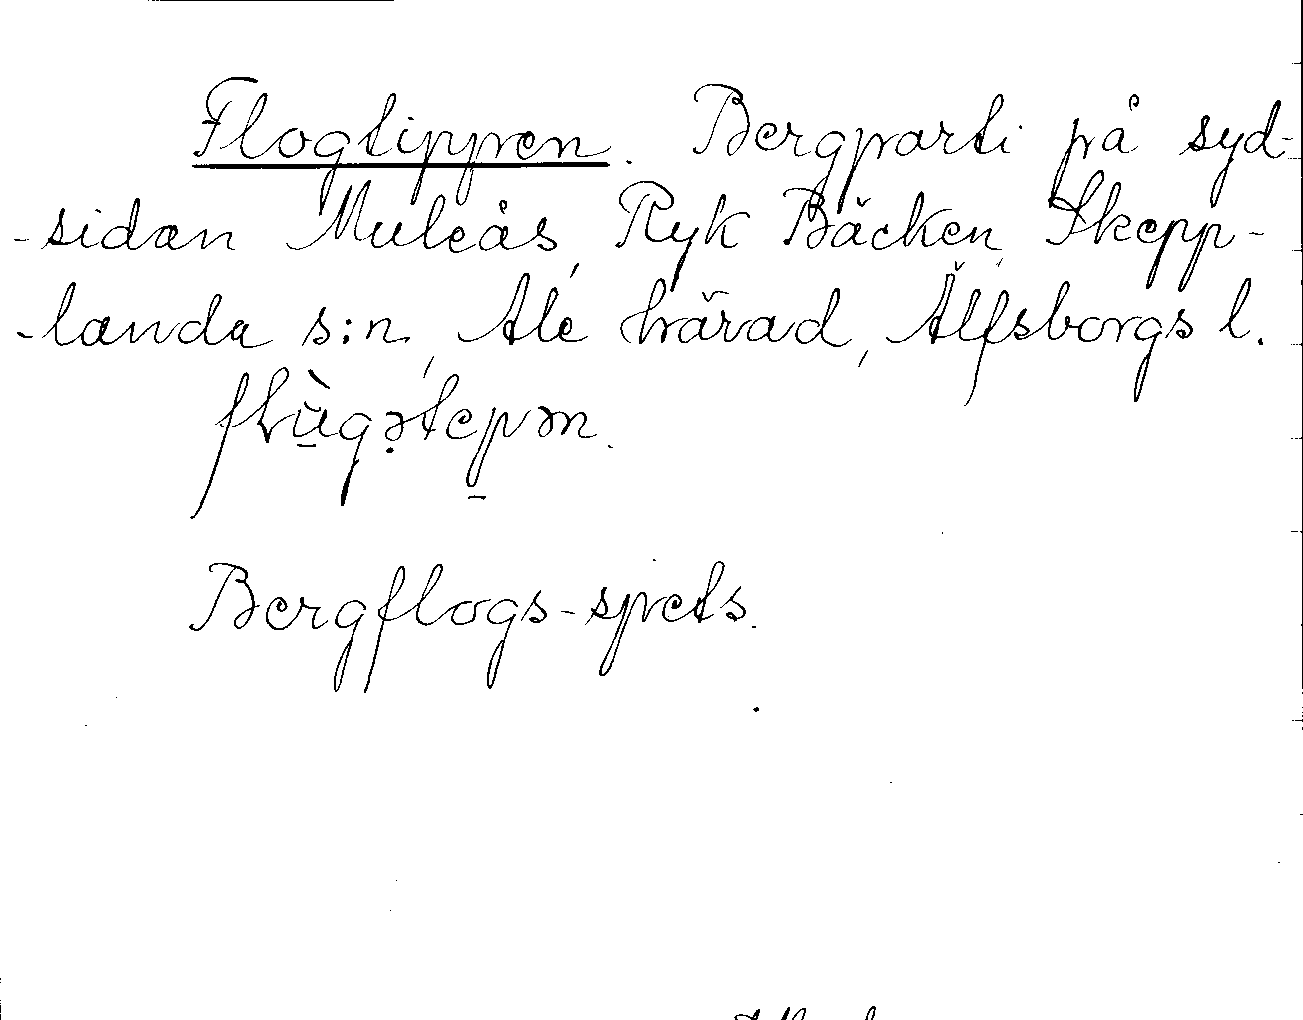 Flogtippen. Bergparti på syd-
-sidan Muleås, Ryk Bäcken, Skepp-
-landa s:n, Ale härad, Älfsborgs l.
Bergflogs-spets.